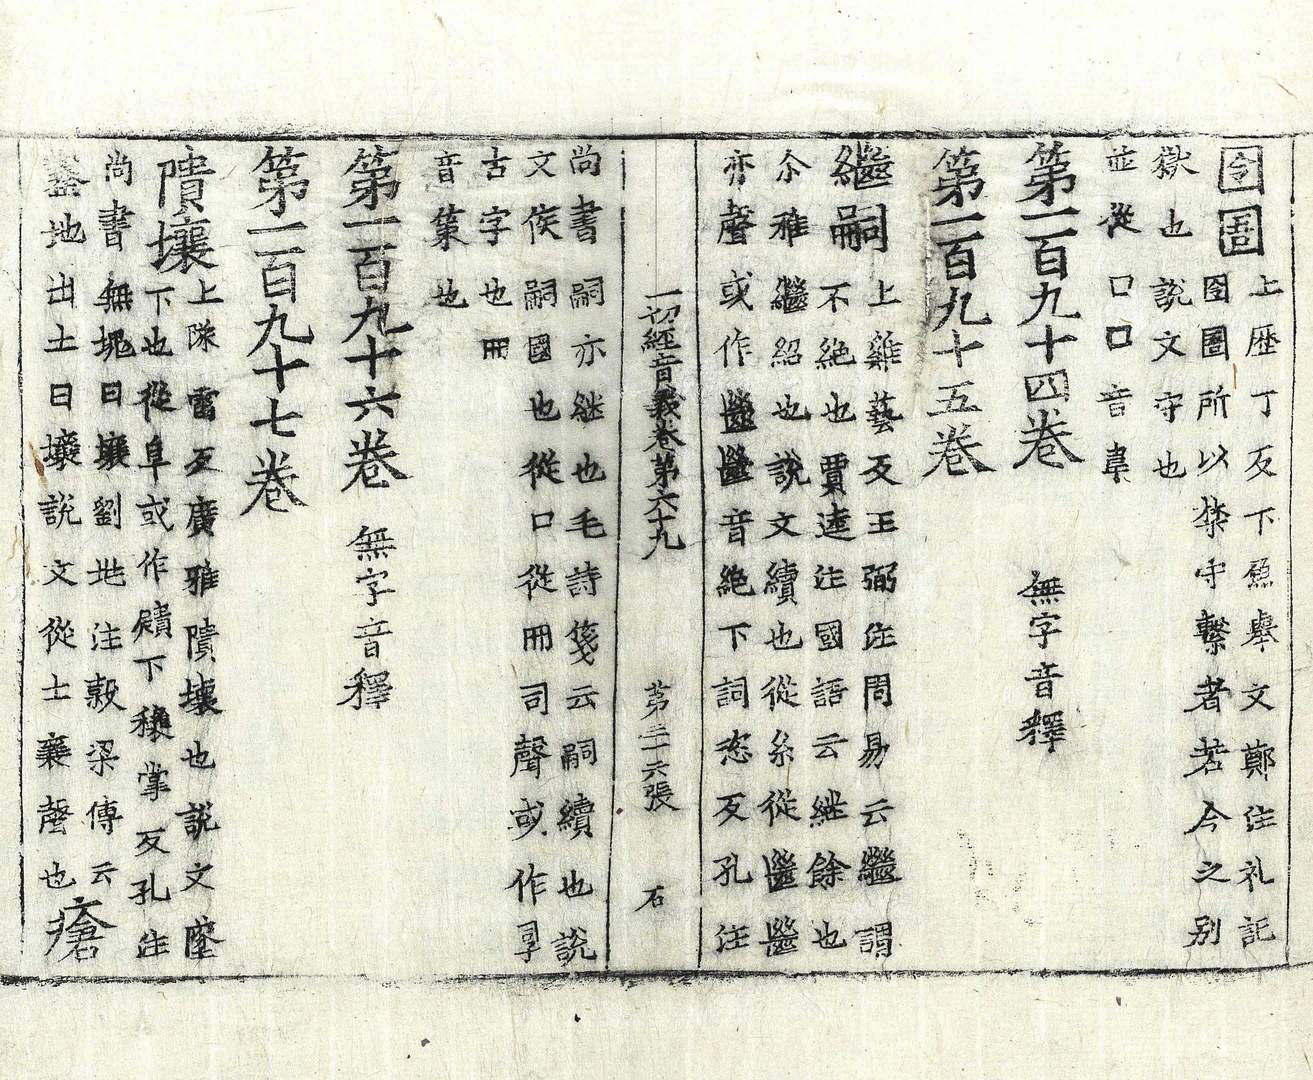 囹圄
上歷丁反下魚舉反文鄭注礼記
囹圄所以禁守繫者若今之別
獄也說文守也
並從口口音韋
第一百九十四卷 無字音釋
第一百九十五卷
繼嗣
上雞藝反王弼注周易云繼謂
不絶也賈逵注國語云継餘也
尒雅繼紹也說文續也從糸從㡭㡭
亦聲或作㡭㡭音絶下詞恣反孔注
一切經音義卷第六十九 第三十六張 石
尚書嗣亦継也毛詩箋云嗣續也說
文侯嗣國也從口從冊司聲或作孠
古字也冊
音策也
第一百九十六卷 無字音釋
第一百九十七卷
隤壤
上隊雷反廣雅隤壞也說文墜
下也從阜或作䫋下穰掌反孔注
尚書無塊曰壤劉兆注穀梁傳云
鑿地出土曰壤說文從土襄聲也瘡